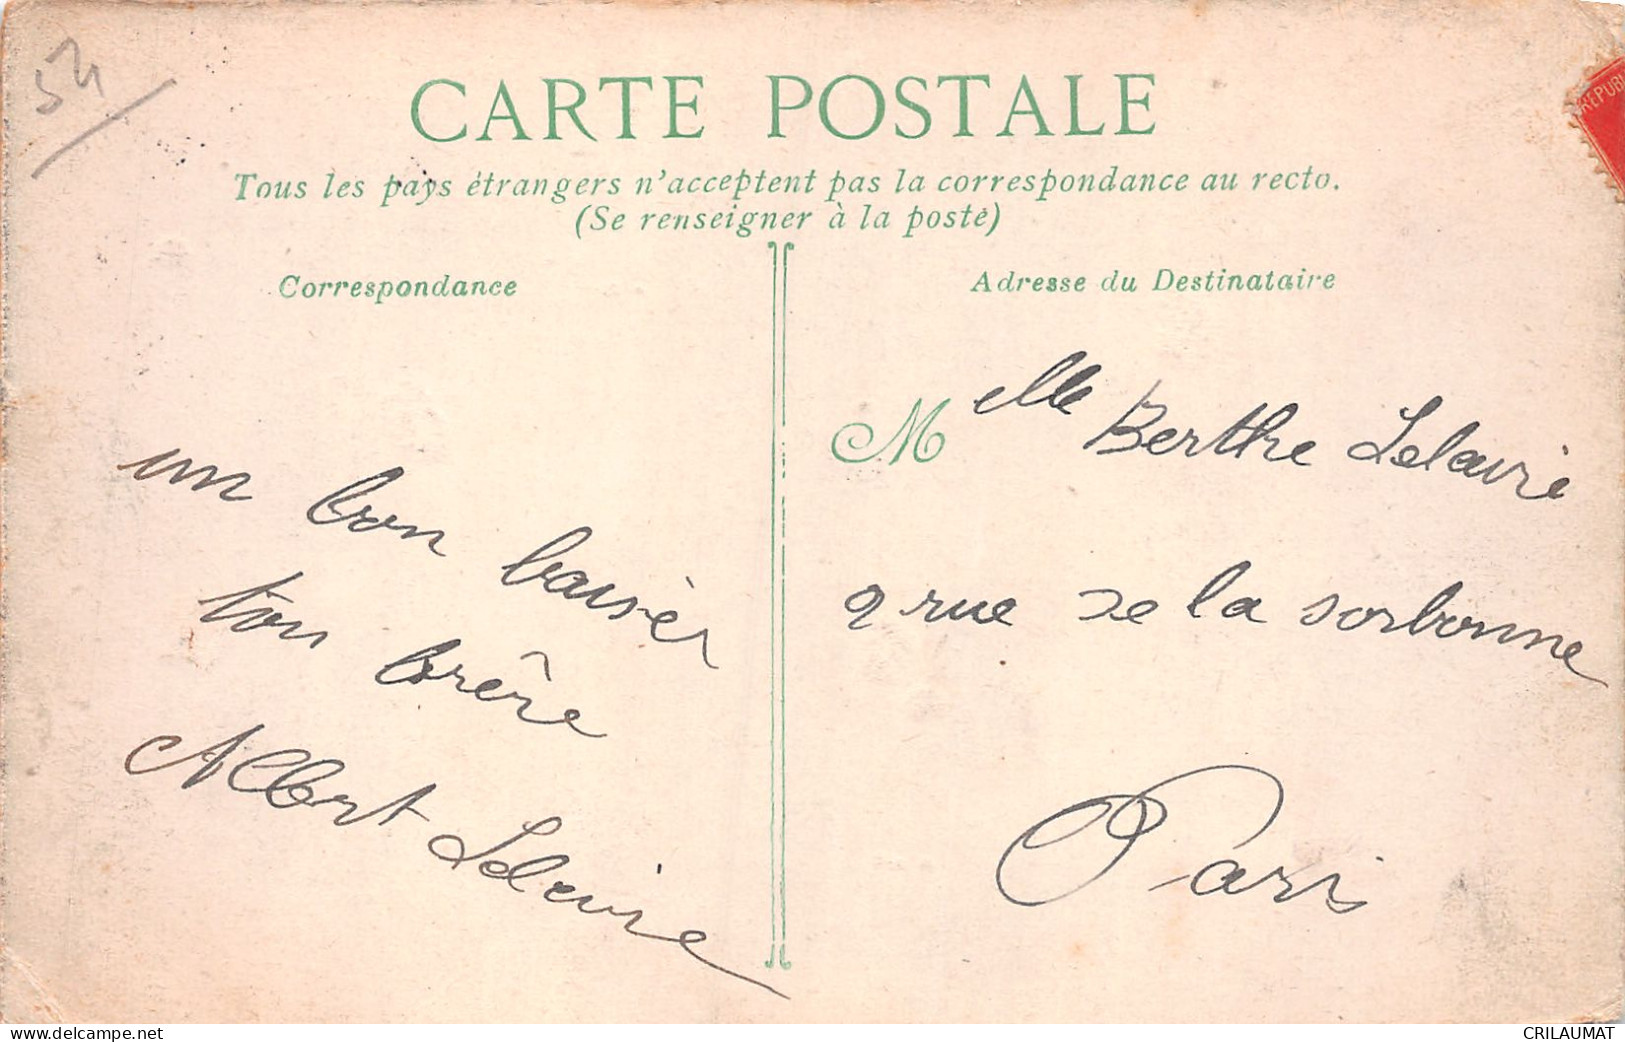 54
CARTE POSTALE
REPUBL
Tous les pays étrangers n'acceptent pas la correspondance au recto.
(Se renseigner à la poste)
Correspondance
un bon baiser
ton frère
Albert Lelaure
Adresse du Destinataire
Melle Berthe Lelaure
9 rue de la sorbonne
Paris
www.delcampe.net
CRILAUMAT